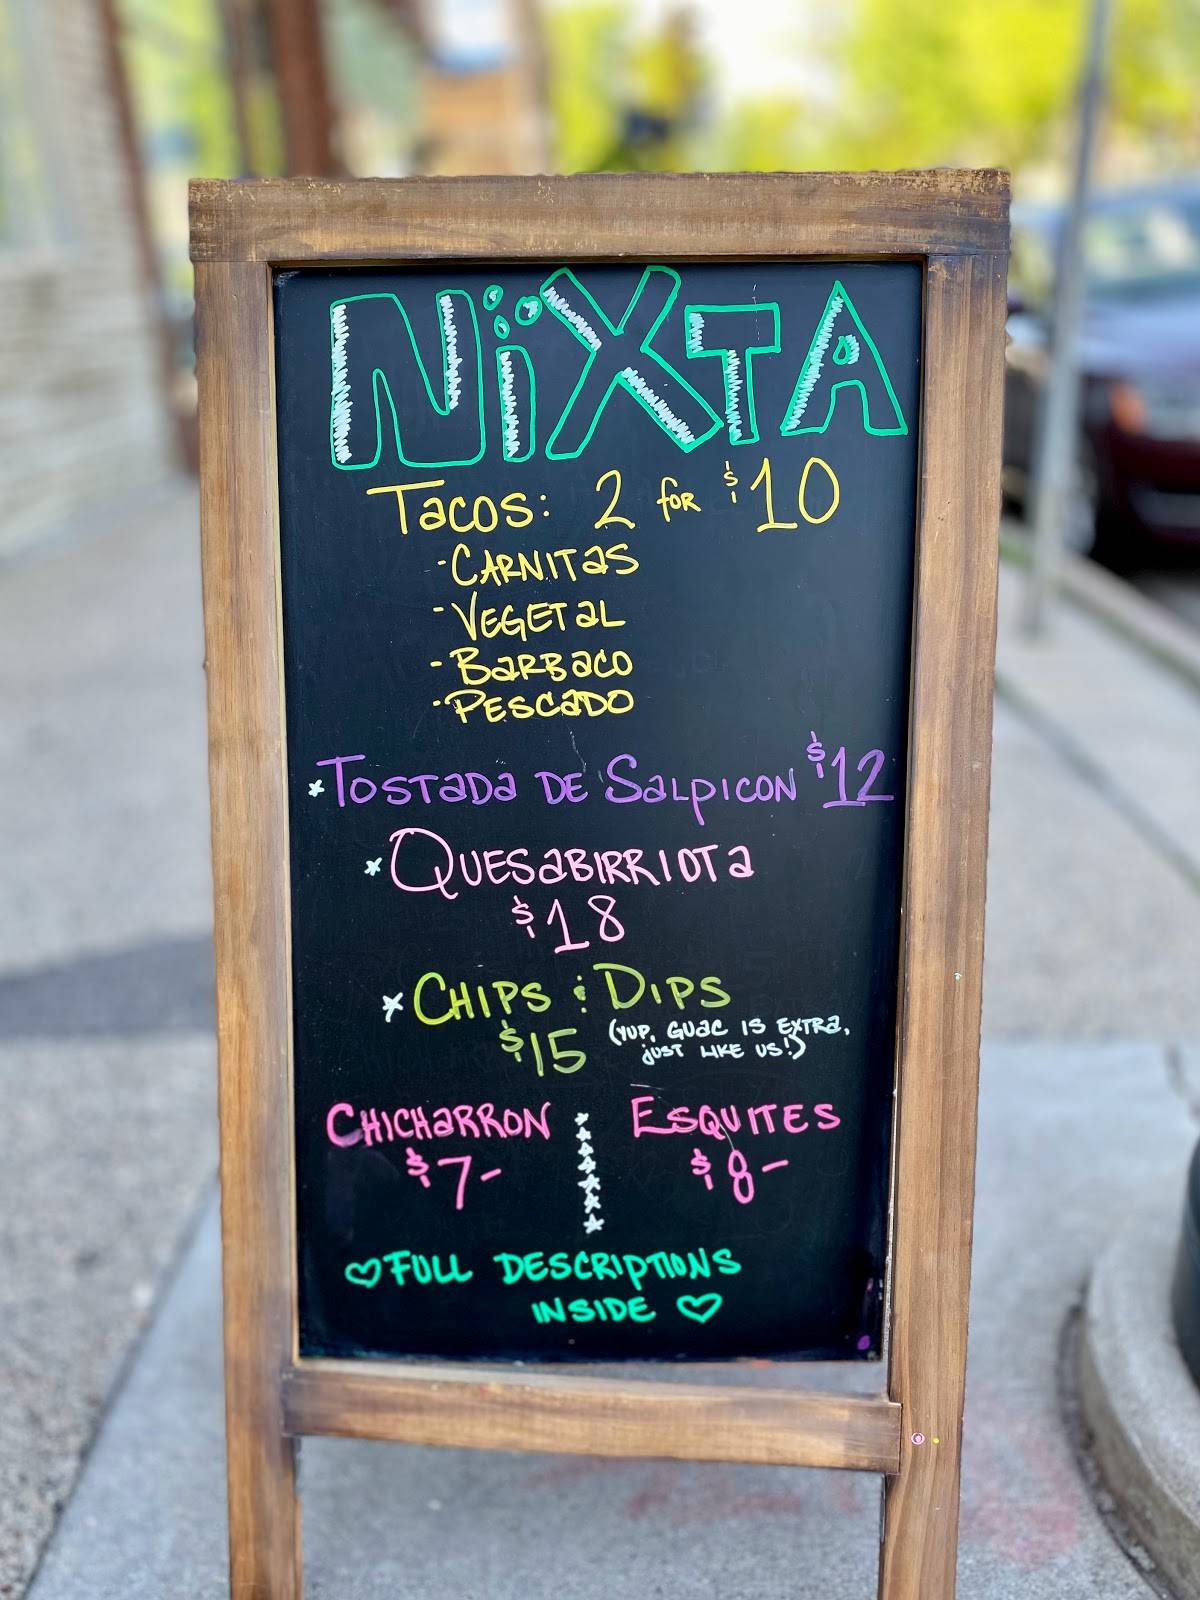 NiXTA
Tacos: 2 for $10
- CARNITaS
- VEGETaL
- BaRBaCO
- PESCaDO
* TOSTaDa DE SaLPICON $12
* QUESaBIRRIOTa
$18
* CHIPS & DIPS
$15 (YUP, GUaC IS EXTRa,
JUST LIKE US!)
CHICHaRRON ESQUITES
$7- $8-
♡ FULL DESCRIPTIONS
INSIDE ♡